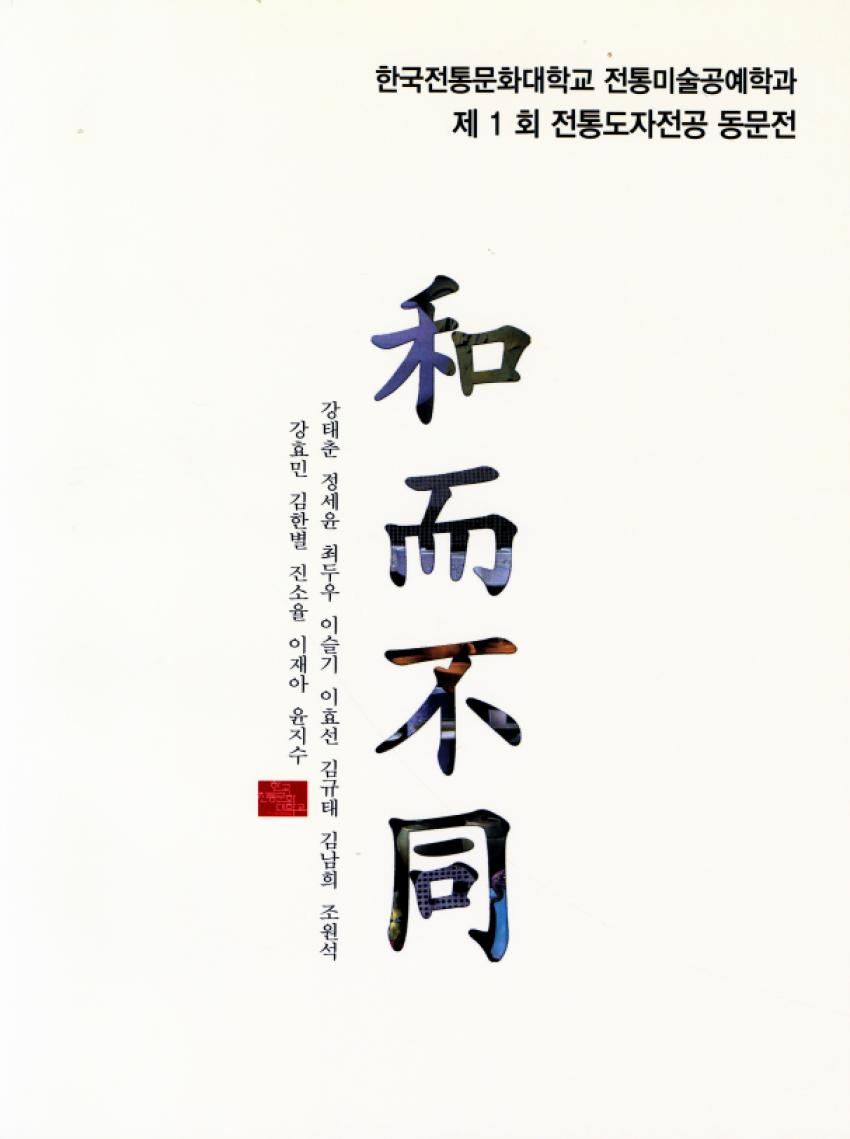 한국전통문화대학교 전통미술공예학과
제 1 회 전통도자전공 동문전
和而不同
강태춘 정세윤 최두우 이슬기 이효선 김규태 김남희 조원석
강효민 김한별 진소율 이재아 윤지수
한국
전통문화
대학교